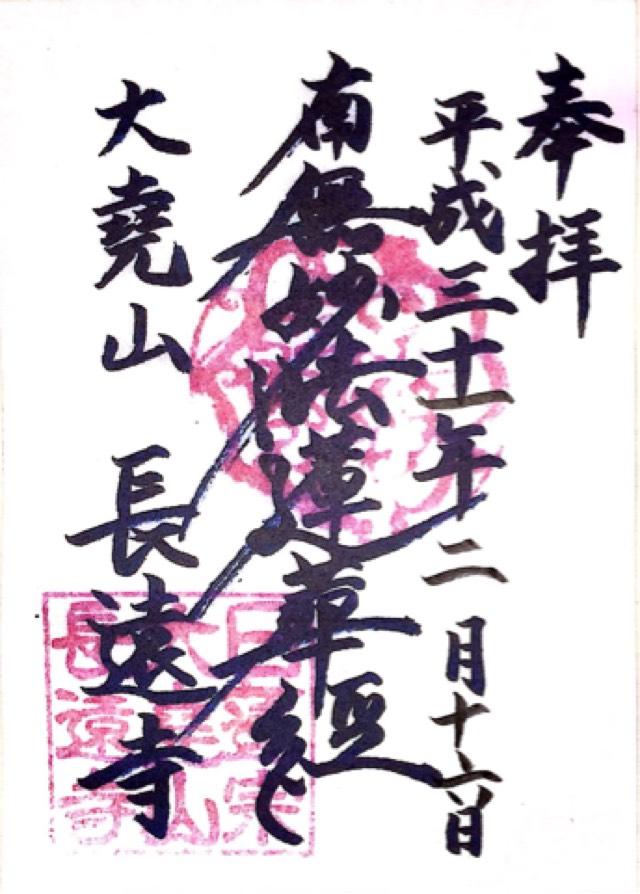 奉拝
平成三十一年二月十六日
南無妙法蓮華経
大堯山 長遠寺
日蓮宗
大堯山
長遠寺